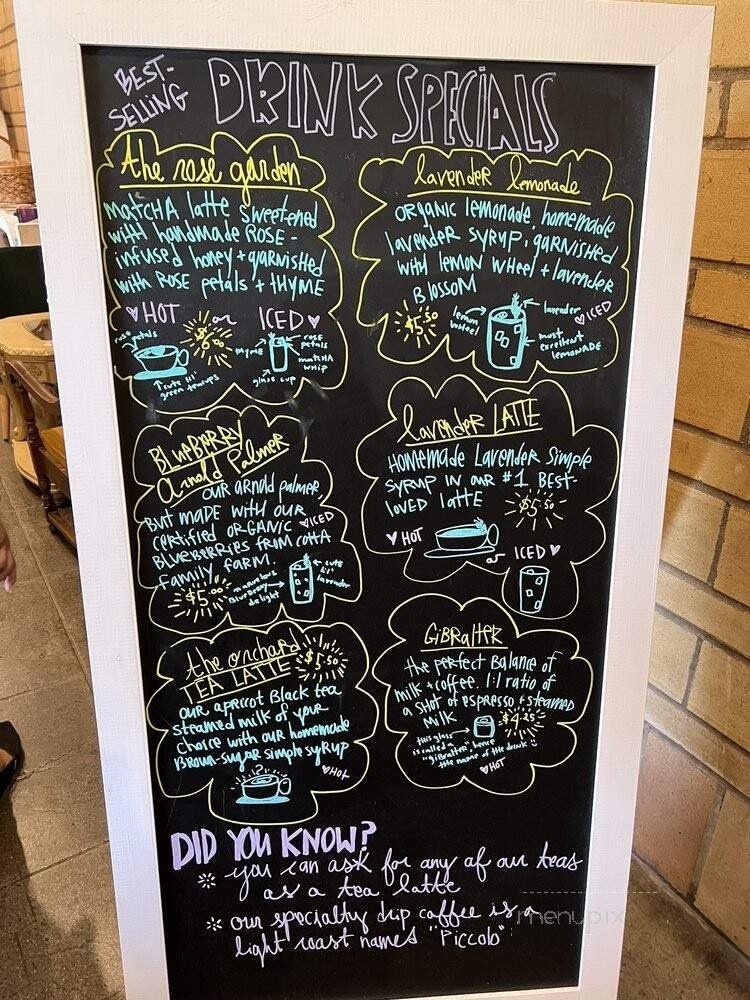 BEST-
SELLING
DRINK SPECIALS
The rose garden
MATCHA latte sweetened
with handmade ROSE-
infused honey + garnished
with ROSE petals + THYME
HOT or ICED
$6.00
rose petals
cute lil
green teacups
thyme
rose
petals
matcha
whip
glass cup
lavender lemonade
ORGANIC lemonade, homemade
lavender syrup, garnished
with lemon wheel + lavender
Blossom
$5.50
lemon
wheel
lavender
ICED
most
excellent
lemonade
BLUEBERRY
Arnold Palmer
our arnold palmer,
but made with our
certified ORGANIC
ICED
BLUEBERRIES FROM COTTA
Family farm.
$5.00
marvelous
Blueberry
delight
cute
lil'
lavender
lavender LATTE
Homemade Lavender Simple
syrup in our #1 BEST-
loved latte
$5.50
HOT
or ICED
the orchard
TEA LATTE
$5.50
our apricot Black tea
steamed milk of your
choice with our homemade
Brown-sugar simple syrup
HOT
GIBRALTER
the perfect Balance of
milk + coffee. 1:1 ratio of
a shot of espresso + steamed
milk
$4.25
this glass
is called a
"gibralter", hence
the name of the drink
HOT
DID YOU KNOW?
you can ask for any of our teas
as a tea latte
our specialty drip coffee is a
light roast names "Piccolo"
menupix